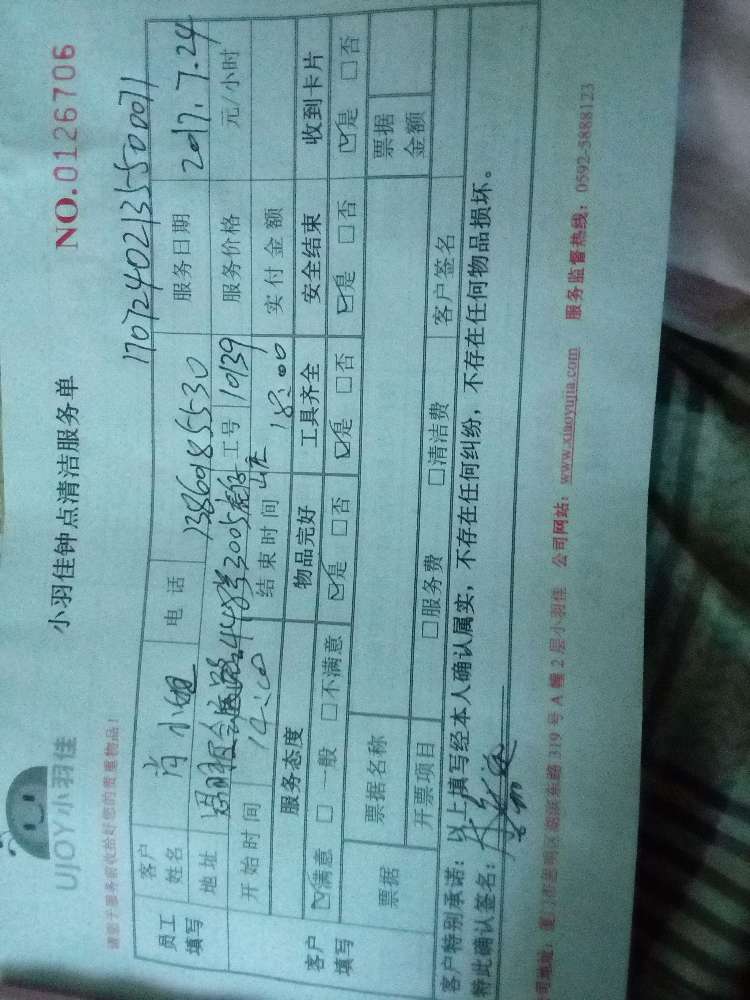 UJOY小羽佳
小羽佳钟点清洁服务单
NO.0126706
请您于服务前收拾好您的贵重物品!
17072402135500071
员工填写
客户姓名 肖小姐 电话 13860185530 服务日期 2017.7.24
地址 工号 10139 服务价格 元/小时
开始时间 14:00 结束时间 18:00 实付金额
客户填写
服务态度 物品完好 工具齐全 安全结束 收到卡片
☑满意 □一般 □不满意 ☑是 □否 ☑是 □否 ☑是 □否 ☑是 □否
票据 票据名称 票据金额
开票项目 □服务费 □清洁费 客户签名
客户特别承诺:以上填写经本人确认属实,不存在任何纠纷,不存在任何物品损坏。
特此确认签名:
司地址:厦门市思明区湖滨东路319号A幢2层小羽佳 公司网站:www.xiaoyujia.com 服务监督热线:0592-5888123